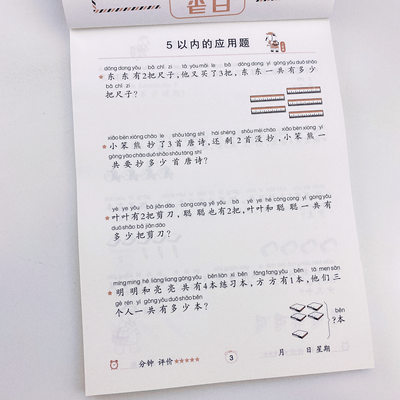 5以内的应用题
dōng dong yǒu bǎ chǐ zi tā yòu mǎi le bǎ dōng dong yí gòng yǒu duō shǎo
东东有2把尺子,他又买了3把,东东一共有多少
bǎ chǐ zi
把尺子?
xiǎo bèn xióng chāo le shǒu táng shī hái shèng shǒu méi chāo xiǎo bèn xióng yí
小笨熊抄了3首唐诗,还剩2首没抄,小笨熊一
gòng yào chāo duō shǎo shǒu táng shī
共要抄多少首唐诗?
yè ye yǒu bǎ jiǎn dāo cōng cong yě yǒu bǎ yè ye hé cōng cong yí gòng yǒu
叶叶有2把剪刀,聪聪也有2把,叶叶和聪聪一共有
duō shǎo bǎ jiǎn dāo
多少把剪刀?
míng míng hé liàng liang gòng yǒu běn liàn xí běn fāng fang yǒu běn tā men sān
明明和亮亮共有4本练习本,方方有1本,他们三
gè rén yí gòng yǒu duō shǎo běn
个人一共有多少本?
běn
?本
分钟 评价★★★★★
3
月 日 星期